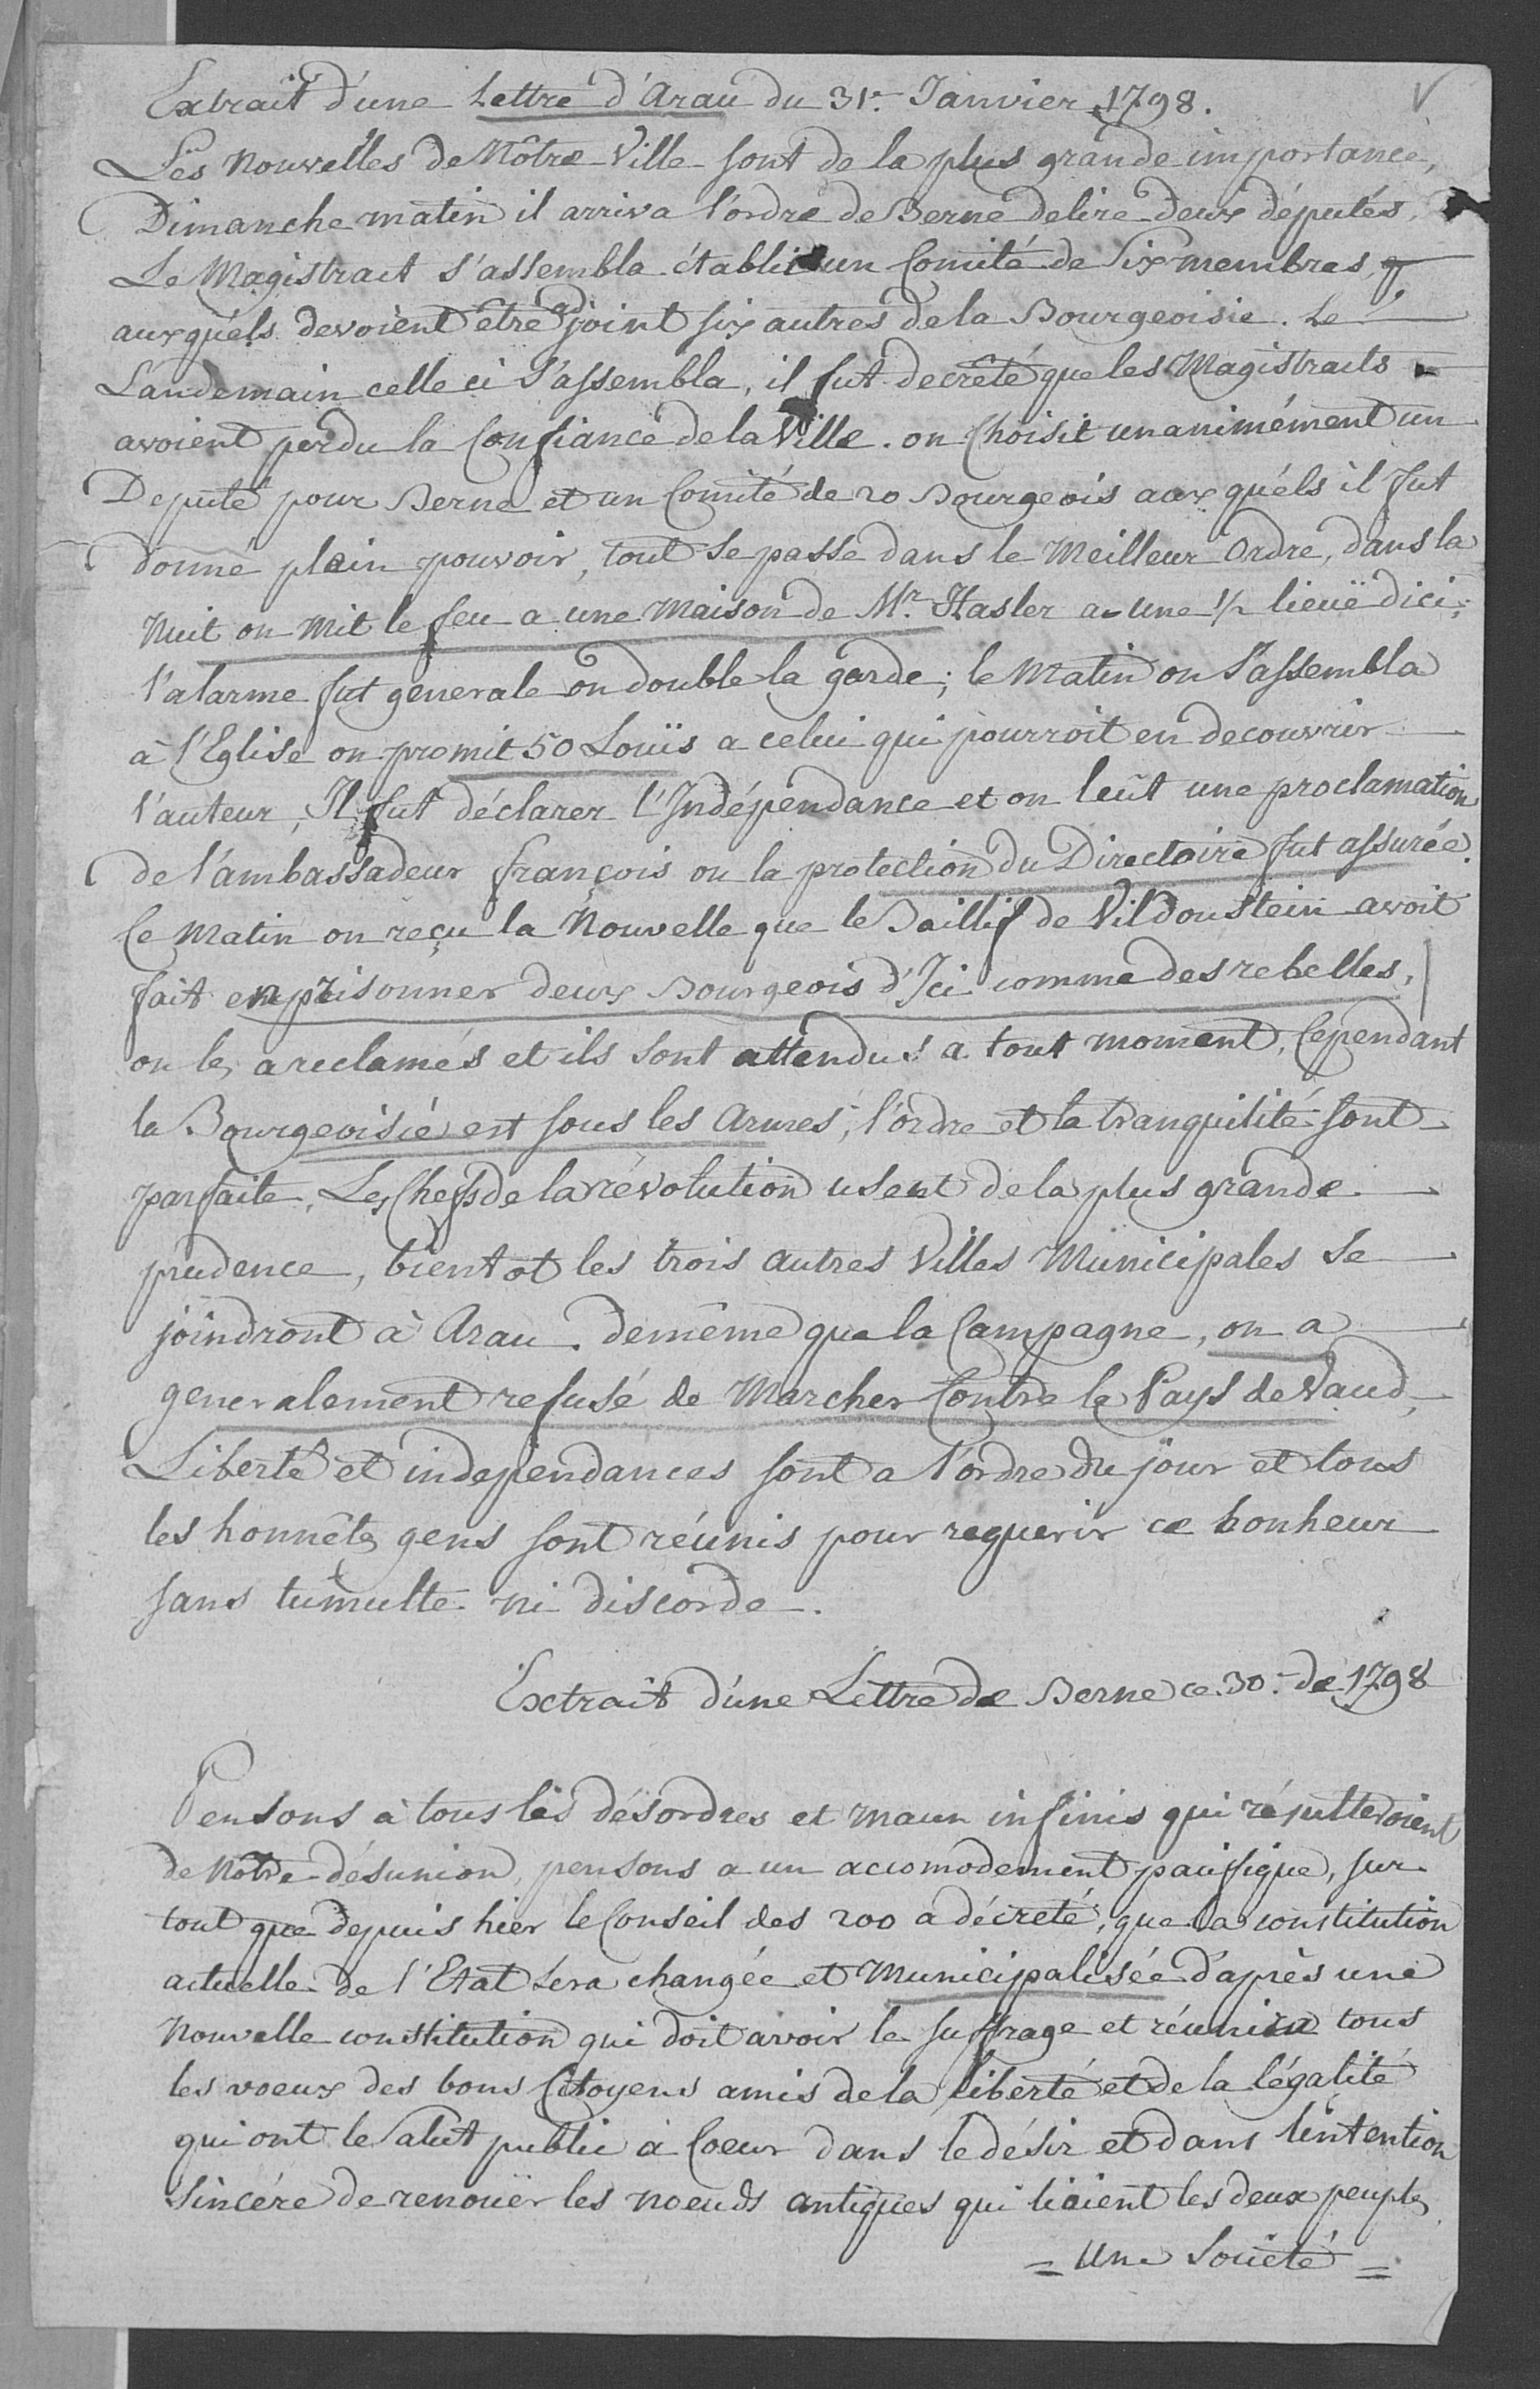 Extrait d'une Lettre d'Arau du 31.- Janvier 1798.
Les Nouvelles de Nôtre Ville sont de la plus grande importance,
Dimanche matin il arriva l'ordre de Berne delire deux députés,
Le Magistrait s'assembla établit un Comité de Six membres,
auxquéls devoient être adjoint six autres de la Bourgeoisie. Le
Landemain celle ci S'assembla, il fut decrété que les Magistraits
avoient perdu la Confiance de la Ville. on Choisit unanimément un
Deputé pour Berne et un Comité de 20 Bourgeois aux quéls il fut
donné plein pouvoir, tout se passe dans le Meilleur Ordre, dans la
Nuit on mit le feu a une Maison de Mr. Hasler a une ½ lieuë dici;
l'alarme fut generale on double la garde; le Matin on S'assembla
à l'Eglise on promit 50 Louïs a celui qui pourroit en decouvrir
l'auteur, Il fut déclarer l'Indépendance et on leût une proclamation
de l'ambassadeur françois ou la protection du Directoire fut assurée.
Ce Matin on reçu la Nouvelle que le Baillif de Vildoustein avoit
fait enprisonner deux Bourgeois d'Ici comme des rebelles,
on les a reclamés et ils sont attendus a tout moment, Cependant
la Bourgeoisie est sous les Armes, l'ordre et la tranquilité sont
parfaite, Les Chefs de la révolution usent de la plus grande
prudence, bientot les trois autres Villes Municipales se
joindront à Arau. demême que la Campagne, on a
generalement refusé de Marcher Contre le Pays de Vaud,
Liberté et independances sont a l'ordre du jour et tous
les honnêtes gens sont réunis pour requerir ce bonheur
sans tumulte ni discorde.
Extrait d'une Lettre de Berne ce 30.- de 1798
Pensons à tous les désordres et maux infinis qui résulteroient
de Nôtre désunion, pensons a un accomodement pacifique, sur
tout que depuis hier le Conseil des 200 a décreté, que la constitution
actuelle de l'Etat sera changée et Municipalisée d'après une
Nouvelle constitution qui doit avoir le suffrage et réunir tous
les voeux des bons Citoyens amis de la liberté et de la légalité
qui ont le Salut public à Coeur dans le désir et dans l'intention
Sincére de renouër les noeuds antiques qui lioient les deux peuples
= Une Societé =